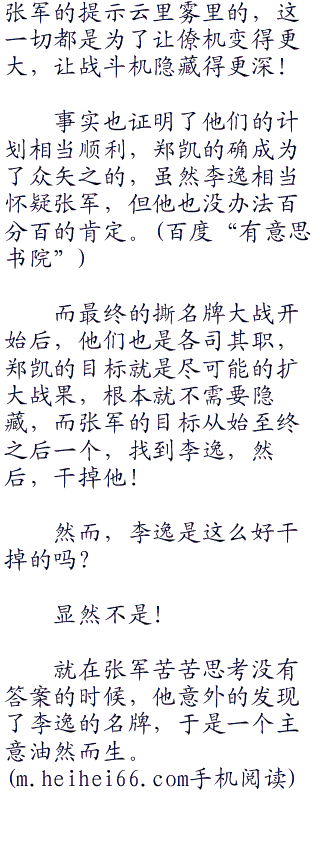 张军的提示云里雾里的，这
一切都是为了让僚机变得更
大，让战斗机隐藏得更深！
事实也证明了他们的计
划相当顺利，郑凯的确成为
了众矢之的，虽然李逸相当
怀疑张军，但他也没办法百
分百的肯定。(百度“有意思
书院”)
而最终的撕名牌大战开
始后，他们也是各司其职，
郑凯的目标就是尽可能的扩
大战果，根本就不需要隐
藏，而张军的目标从始至终
之后一个，找到李逸，然
后，干掉他！
然而，李逸是这么好干
掉的吗？
显然不是！
就在张军苦苦思考没有
答案的时候，他意外的发现
了李逸的名牌，于是一个主
意油然而生。
(m.heihei66.com手机阅读)